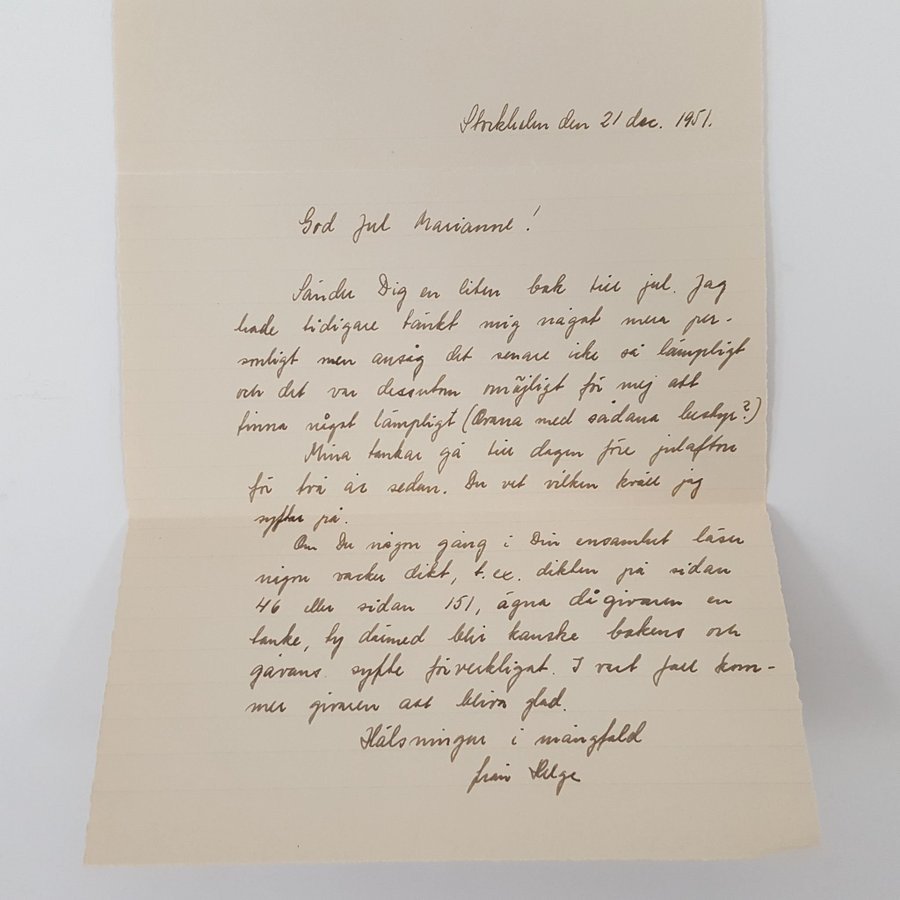 Stockholm den 21 dec. 1951.
God Jul Marianne!
Sänder Dig en liten bok till jul. Jag
hade tidigare tänkt mig något mera per-
sonligt men ansåg det senare icke så lämpligt
och det var dessutom omöjligt för mej att
finna något lämpligt (Ovana med sådana bestyr?)
Mina tankar gå till dagen före julafton
för två år sedan. Du vet vilken kväll jag
syftar på.
Om Du någon gång i Din ensamhet läser
någon vacker dikt, t.ex. dikten på sidan
46 eller sidan 151, ägna då givaren en
tanke, ty därmed blir kanske bokens och
gåvans syfte förverkligat. I vart fall kom-
mer givaren att bliva glad.
Hälsningar i mångfald
från Helge